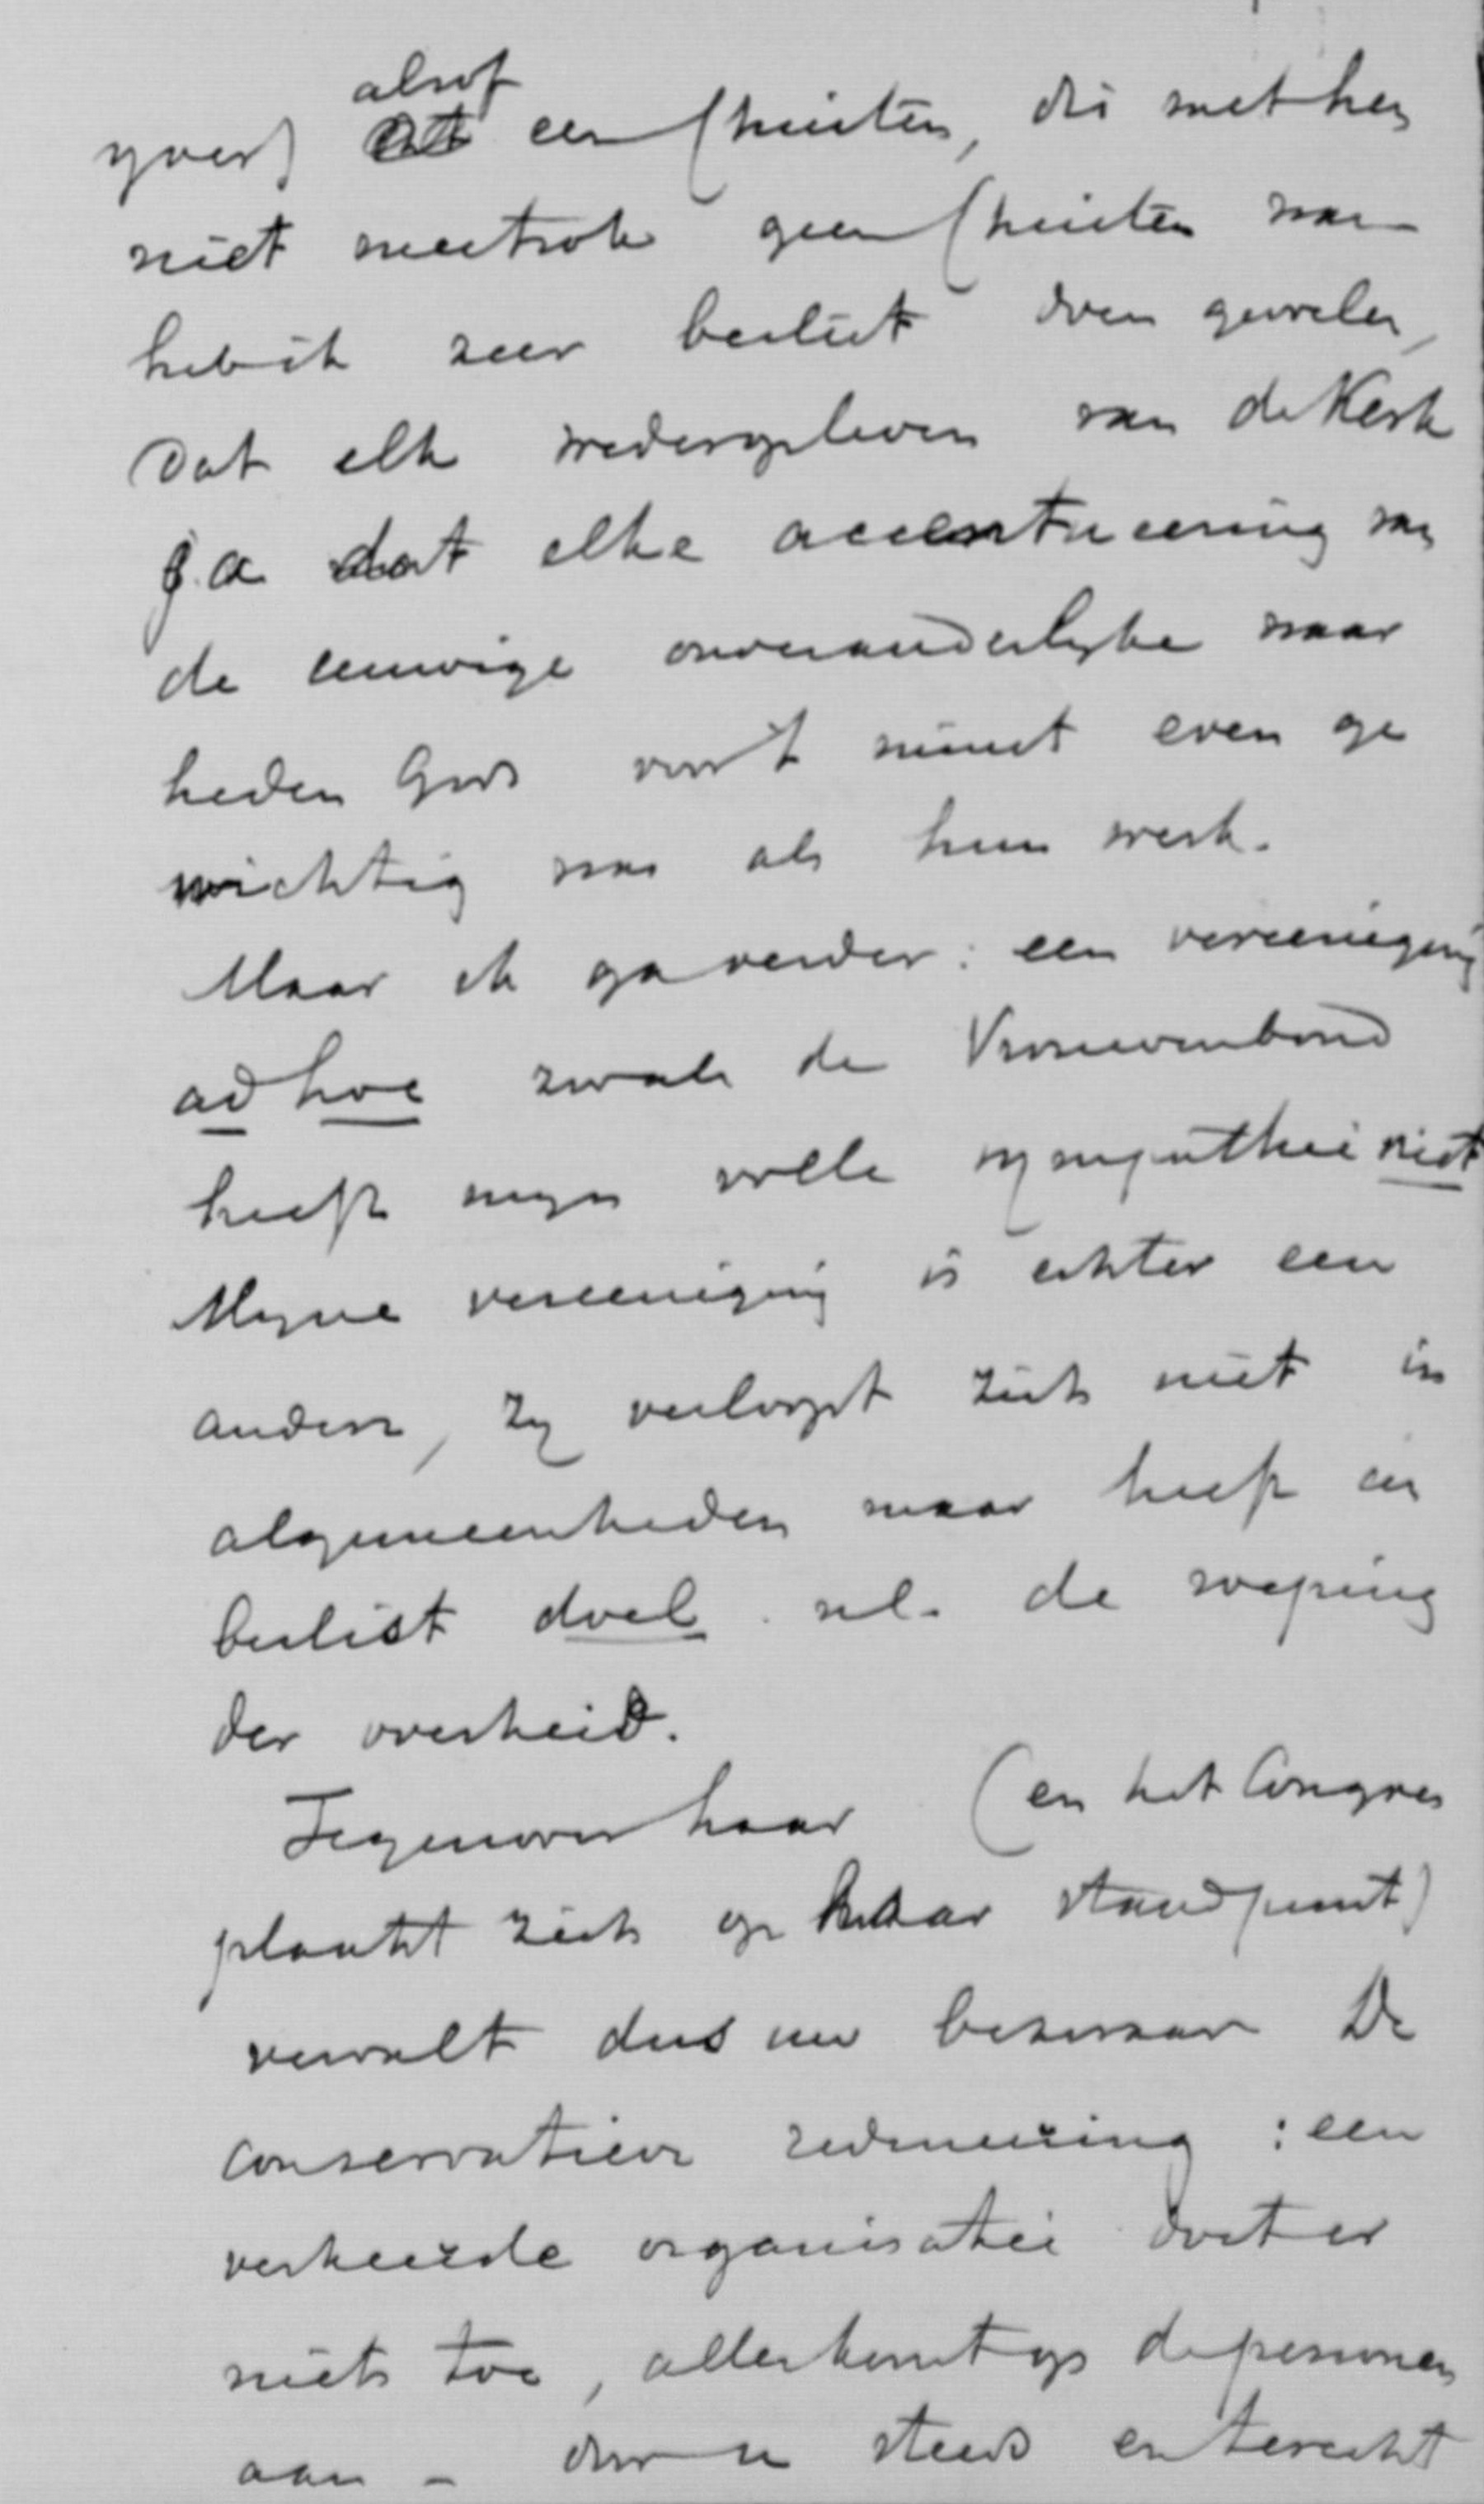 alsof
yver) een Christen, die met hen
niet meetrok geen Christen was
heb ik zeer beslist doen gevoelen,
dat elk wedergeboren van de Kerk
ja dat elke accentueering van
de eeuwige onveranderlyke waar
heden Gods van 't minst even ge
wichtig was als hun werk.
Maar ik ga verder: een vereeniging
ad hoc zooals de Vrouwenbond
heeft myn volle sympathie niet
Myne vereeniging is echter een
andere, zy verloopt zich niet in
algemeenheden maar heeft een
beslist doel. nl. de roeping
der overheid.
Tegenover haar (en het Congres
plaatst zich op haar standpunt)
vervalt dus uw bezwaar De
conservatieve redeneering : een
verkeerde organisatie doet er
niets toe, alles komt op de personen
aan - door u steeds en terecht